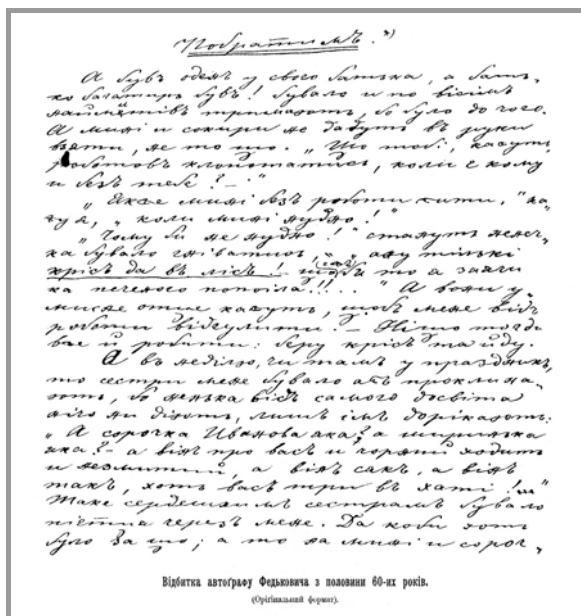 Побратимъ. *)
А бувъ оденъ у своего батька, а бать-
ко багатиръ бувъ! бувало и по вісімъ
наймитівъ тримаютъ, бо було до чого.
А мині и сокири не дадутъ въ руки
взяти, не то що. „Що тобі, кажутъ,
роботовъ клопотатись, коли є кому
и безъ тебе? –"
„Якже мині безъ роботи жити," ка-
жу я, „коли мині нудно!"
„Чому би не нудно!" стануть ненеч-
ка бувало гніватись, „ану тількі
крісъ да въ лісъ! щобъ то а заячи
ка печеного попоїла!!..." А вони у-
мисне отце кажутъ, щобъ мене відъ
роботи відгулити. – Нішо тогді
вже й робити: беру крісъ та йду.
А въ неділю, чи тамъ у праздникъ,
то сестри мене бувало ажъ проклина-
ютъ, бо ненька відъ самого досвіта
нічо ни діютъ, лишъ імъ дорікаютъ:
„А сорочка Иванова яка? а ширинька
яка? – а вінъ про васъ и чорний ходить
и незмитий, а вінъ сякъ, а вінъ
такъ, хоть васъ три въ хаті!..."
Таке сердешнимъ сестрамъ бувало
черезъ мене. Да коби хоть
було за що; а то на мині и сороч-
Відбитка автоґрафу Федьковича з половини 60-их років.
(Оріґінальний формат).